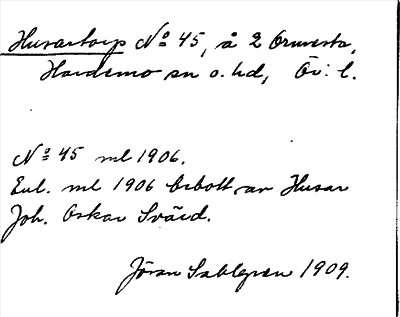 Husartorp No 45, å 2 Ormesta,
Hardemo sn o. hd, Ör: l.
No 45 ml 1906.
Enl. ml 1906 bebott av Husar
Joh. Oskar Svärd.
Jöran Sahlgren 1909.